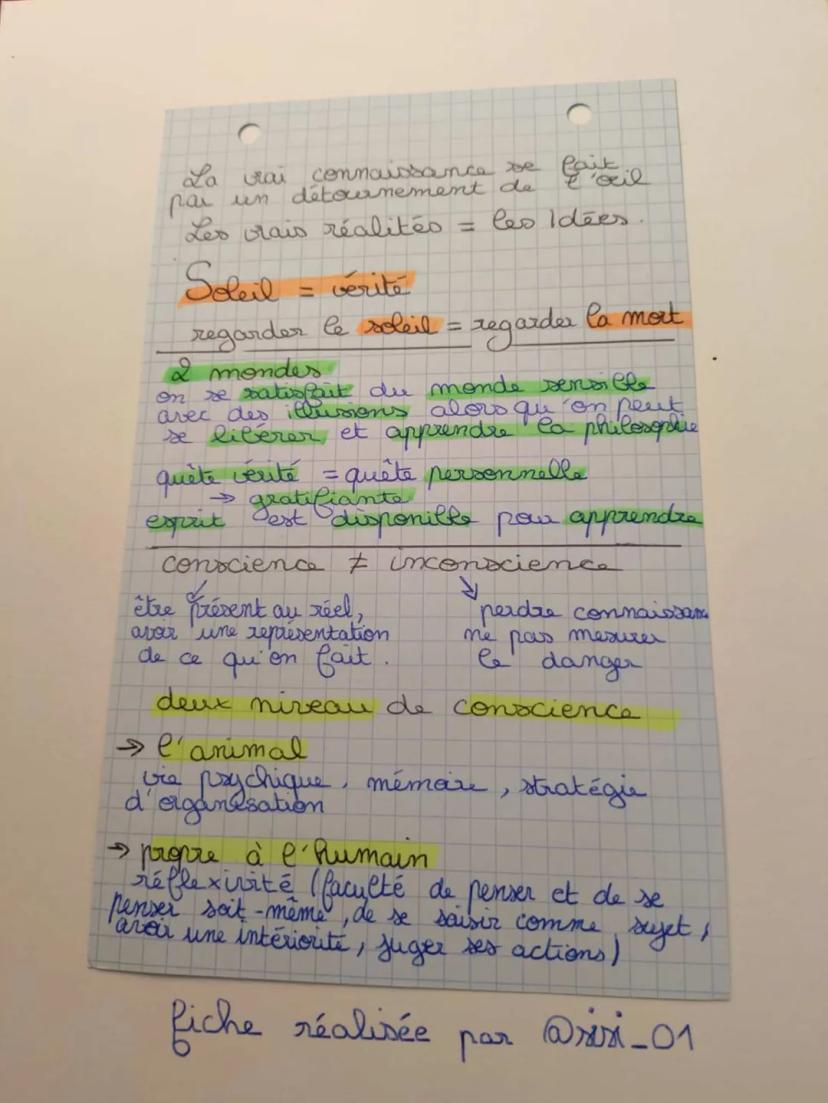 La vrai connaissance se fait
par un détournement de l'œil
Les vrais réalités = les Idées.
Soleil = vérité
regarder le soleil = regarder la mort
2 mondes
on se satisfait du monde sensible
avec des illusions alors qu'on peut
se libérer et apprendre la philosophie
quête vérité = quête personnelle
→ gratifiante
esprit est disponible pour apprendre
conscience ≠ inconscience
être présent au réel,
avoir une représentation
de ce qu'on fait.
perdre connaissance
ne pas mesurer
le danger
deux niveau de conscience
→ l'animal
vie psychique, mémoire, stratégie
d'organisation
→ propre à l'humain
réflexivité (faculté de penser et de se
penser soit-même, de se saisir comme sujet,
avoir une intériorité, juger ses actions)
fiche réalisée par @sisi_01